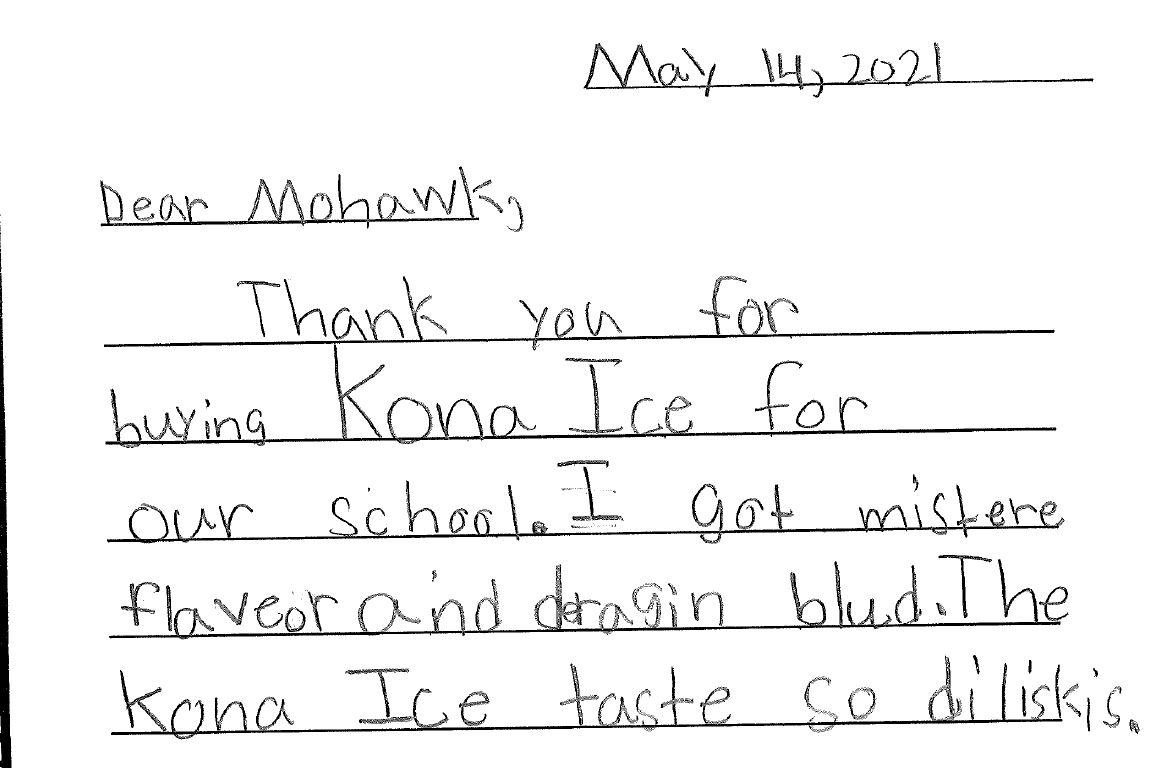 May 14, 2021
Dear Mohawk,
Thank you for
buying Kona Ice for
our school. I got mistere
flaveor and dragin blud. The
Kona Ice taste so diliskis.